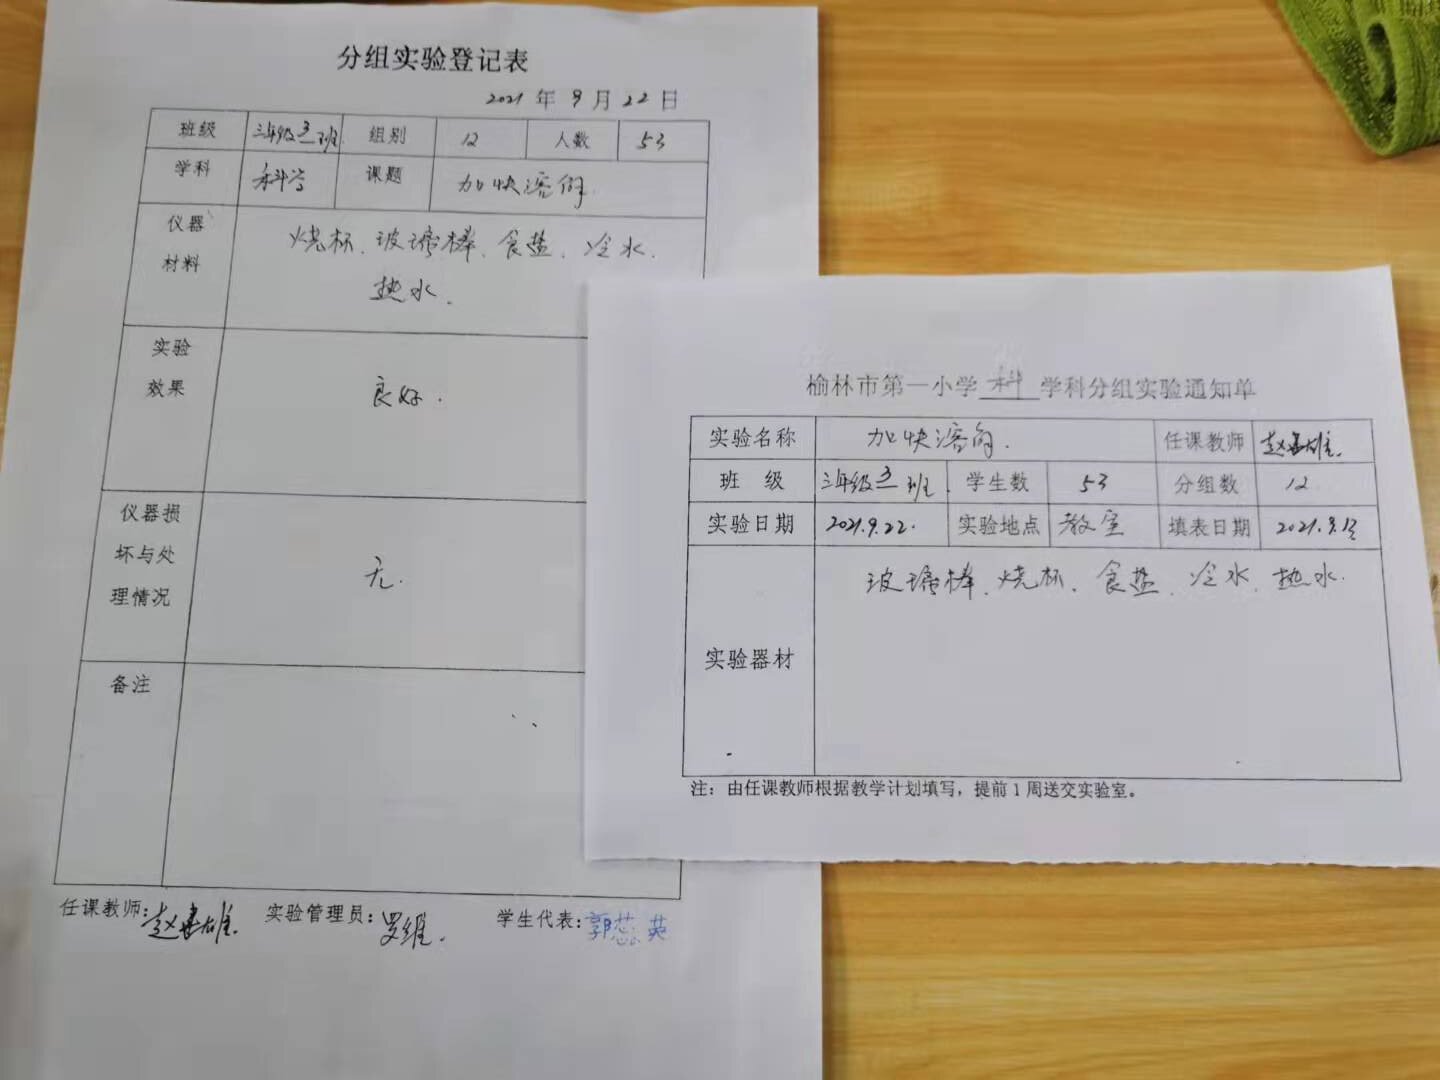 分组实验登记表
2021 年 9 月 22 日
班级 三年级 班 组别 12 人数 53
学科 科学 课题 加快溶解
仪器材料 烧杯、玻璃棒、食盐、冷水、
热水.
实验效果 良好.
仪器损坏与处理情况 无.
备注
任课教师:赵建雄. 实验管理员:罗维. 学生代表:郭蕊英
榆林市第一小学 科 学科分组实验通知单
实验名称 加快溶解. 任课教师 赵建雄.
班 级 三年级 班. 学生数 53 分组数 12
实验日期 2021.9.22. 实验地点 教室 填表日期 2021.9.
实验器材 玻璃棒、烧杯、食盐、冷水、热水.
注：由任课教师根据教学计划填写，提前1周送交实验室。